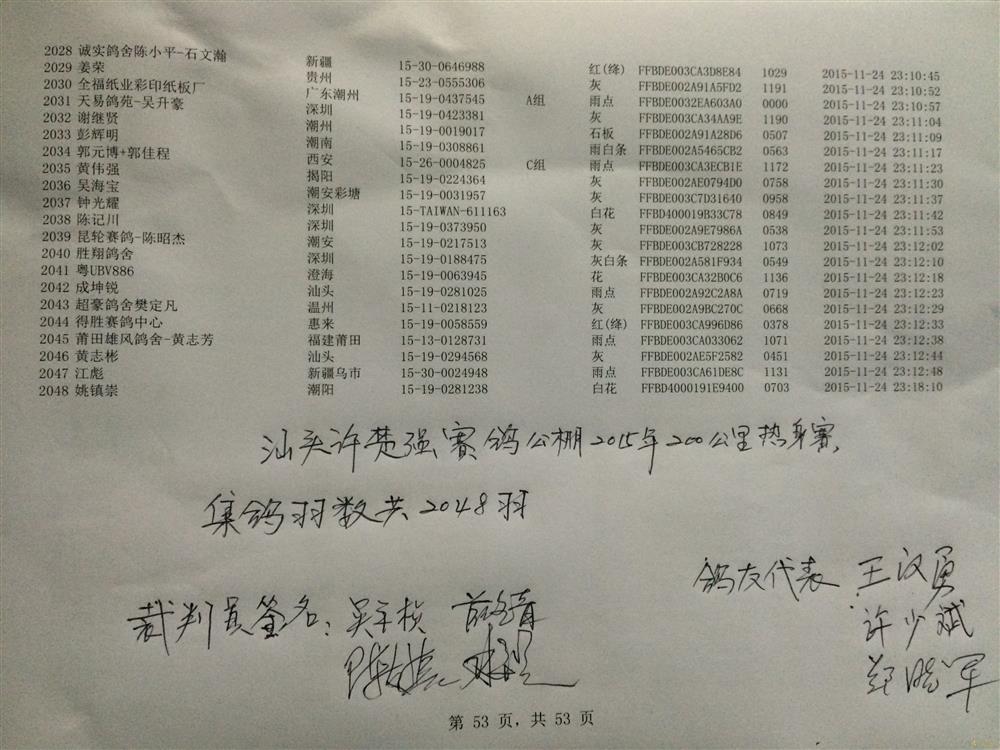 2028 诚实鸽舍陈小平-石文瀚 新疆 15-30-0646988 红(绛) FFBDE003CA3D8E84 1029 2015-11-24 23:10:45
2029 姜荣 贵州 15-23-0555306 灰 FFBDE002A91A5FD2 1191 2015-11-24 23:10:52
2030 全福纸业彩印纸板厂 广东潮州 15-19-0437545 A组 雨点 FFBDE0032EA603A0 0000 2015-11-24 23:10:57
2031 天易鸽苑-吴升豪 深圳 15-19-0423381 灰 FFBDE003CA34AA9E 1190 2015-11-24 23:11:04
2032 谢继贤 潮州 15-19-0019017 石板 FFBDE002A91A28D6 0507 2015-11-24 23:11:09
2033 彭辉明 潮南 15-19-0308861 雨白条 FFBDE002A5465CB2 0563 2015-11-24 23:11:17
2034 郭元博+郭佳程 西安 15-26-0004825 C组 雨点 FFBDE003CA3ECB1E 1172 2015-11-24 23:11:23
2035 黄伟强 揭阳 15-19-0224364 灰 FFBDE002AE0794D0 0758 2015-11-24 23:11:30
2036 吴海宝 潮安彩塘 15-19-0031957 灰 FFBDE003C7D31640 0958 2015-11-24 23:11:37
2037 钟光耀 深圳 15-TAIWAN-611163 白花 FFBD400019B33C78 0849 2015-11-24 23:11:42
2038 陈记川 深圳 15-19-0373950 灰 FFBDE002A9E7986A 0538 2015-11-24 23:11:53
2039 昆轮赛鸽-陈昭杰 潮安 15-19-0217513 灰 FFBDE003CB728228 1073 2015-11-24 23:12:02
2040 胜翔鸽舍 深圳 15-19-0188475 灰白条 FFBDE002A581F934 0549 2015-11-24 23:12:10
2041 粤UBV886 澄海 15-19-0063945 花 FFBDE003CA32B0C6 1136 2015-11-24 23:12:18
2042 成坤锐 汕头 15-19-0281025 雨点 FFBDE002A92C2A8A 0719 2015-11-24 23:12:23
2043 超豪鸽舍樊定凡 温州 15-11-0218123 灰 FFBDE002A9BC270C 0668 2015-11-24 23:12:29
2044 得胜赛鸽中心 惠来 15-19-0058559 红(绛) FFBDE003CA996D86 0378 2015-11-24 23:12:33
2045 莆田雄风鸽舍-黄志芳 福建莆田 15-13-0128731 雨点 FFBDE003CA033062 1071 2015-11-24 23:12:38
2046 黄志彬 汕头 15-19-0294568 灰 FFBDE002AE5F2582 0451 2015-11-24 23:12:44
2047 江彪 新疆乌市 15-30-0024948 雨点 FFBDE003CA61DE8C 1131 2015-11-24 23:12:48
2048 姚镇崇 潮阳 15-19-0281238 白花 FFBD4000191E9400 0703 2015-11-24 23:18:10
汕头许楚强赛鸽公棚2015年200公里热身赛,
集鸽羽数共2048羽
鸽友代表 王汉勇
许少斌
郑晓军
裁判员签名:
第 53 页, 共 53 页